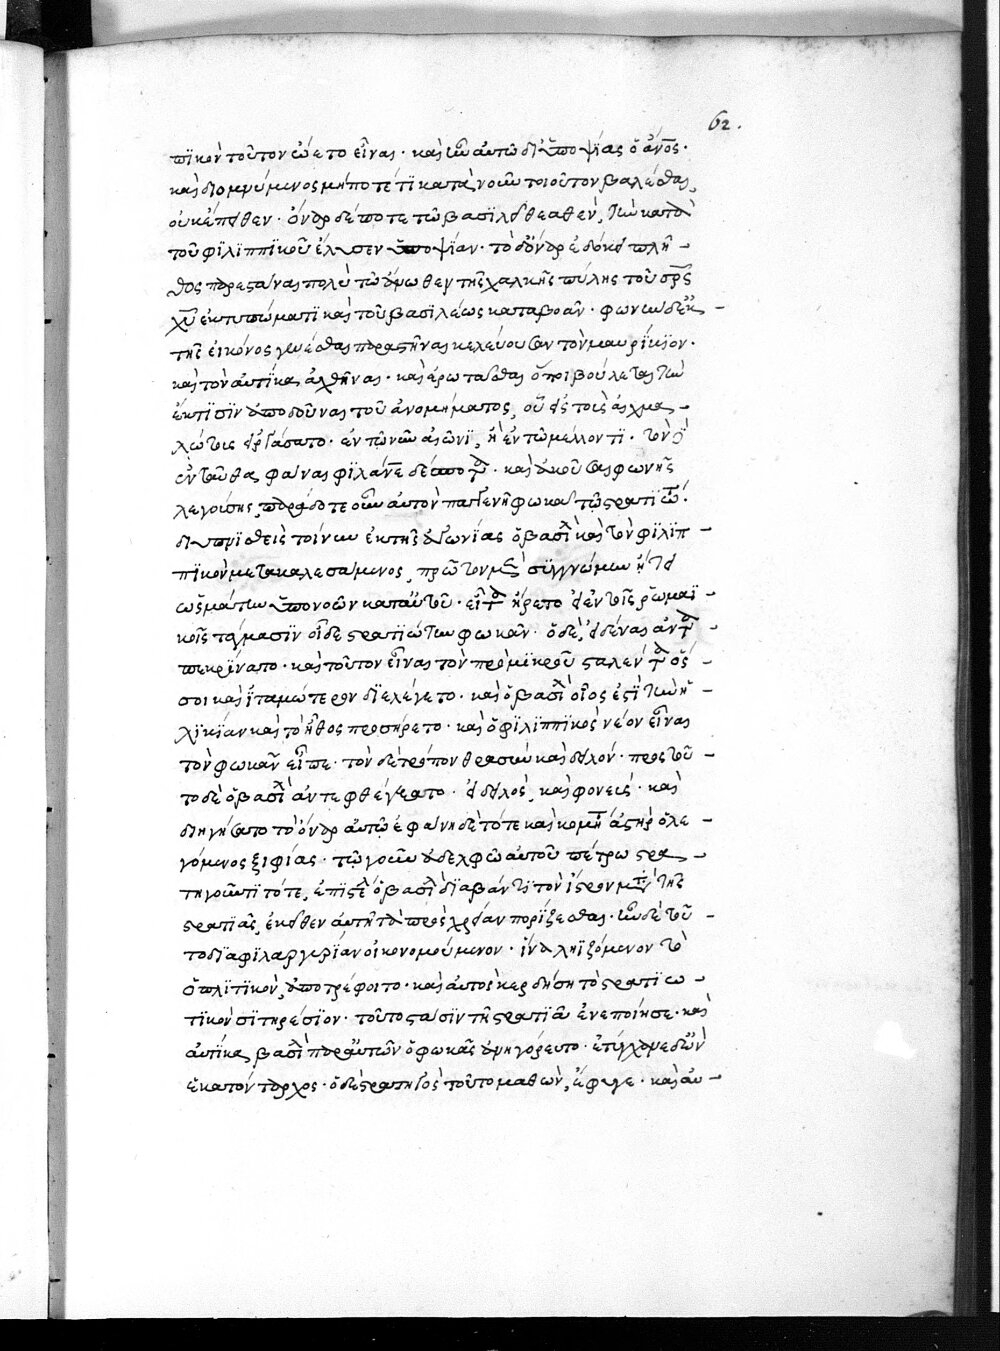 62.
πϊκὸν τοῦτον ᾤετο εἶναι · καὶ ἦν αὐτῷ δι' ὑποψίας ὁ ἄνος ·
καὶ διομνύμενος μήποτέ τι κατὰ νοῦν τοιοῦτον βαλέσθαι,
οὐκ ἔπειθεν · ὄναρ δέ ποτε τῷ βασιλεῖ θεαθὲν, τὴν κατὰ
τοῦ φιλιππϊκοῦ ἔλυσεν ὑποψίαν · τὸ δ' ὄναρ ἐδόκει πλῆ
θος παρεστάναι πολὺ τῷ ἄνωθεν τῆς χαλκῆς πύλης τοῦ σρς
χυ ἐκτυπώματι καὶ τοῦ βασιλέως καταβοᾶν · φωνὴν δ' ἐκ
τῆς εἰκόνος γενέσθαι παραστῆναι κελεύουσαν τὸν μαυρίκιον ·
καὶ τὸν αὐτίκα ἀχθῆναι · καὶ ἐρωτᾶσθαι ὅποι βούλεται τὴν
ἔκτισϊν ἀποδοῦναι τοῦ ἀνομήματος, οὗ εἰς τοὺς αἰχμα
λώτους εἰργάσατο · ἐν τῷ νῦν αἰῶνϊ, ἢ ἐν τῷ μέλλοντϊ · τὸν δ'
ἐνταῦθα, φάναι φιλάνε δέσποτα · καὶ ἀκοῦσαι φωνῆς
λεγούσης, παράδοτε οὖν αὐτὸν παγγενῆ φωκᾶ τῷ στρατιώτῃ.
διυπνισθεὶς τοίνυν ἐκ τῆς ἀγωνίας ὁ βασιλ καὶ τὸν φιλιπ
πϊκὸν μετακαλεσάμενος, πρῶτον μὲν συγγνώμην ᾔτει
ὡς μάτην ὑπονοῶν κατ' αὐτοῦ · εἶτα ἤρετο εἰ ἐν τοῖς ῥωμαϊ
κοῖς τάγμασϊν οἶδε στρατιώτην φωκᾶν · ὁ δὲ, εἰδέναι ἀντα
πεκρίνατο · καὶ τοῦτον εἶναι τὸν πρὸ μικροῦ σταλέντα ὅς
σοι καὶ ἰταμώτερον διελέγετο · καὶ ὁ βασιλ οἷος ἐστὶ τὴν ἡ
λικίαν καὶ τὸ ἦθος προσήρετο · καὶ ὁ φιλιππϊκὸς νέον εἶναι
τὸν φωκᾶν εἶπε · τὸν δὲ τρόπον θρασὺν καὶ δειλόν · πρὸς τοῦ
το δὲ ὁ βασιλ ἀντεφθέγξατο · εἰ δειλὸς, καὶ φονεύς · καὶ
διηγήσατο τὸ ὄναρ αὐτῷ ἐφάνη δὲ τότε καὶ κομήτης ἀστὴρ ὁ λε
γόμενος ξιφίας · τῷ γοῦν ἀδελφῷ αὐτοῦ πέτρῳ στρα
τηγοῦντι τότε, ἐπέστειλε ὁ βασιλ διαβάντϊ τὸν ἴστρον μετὰ τῆς
στρατιᾶς, ἐκεῖθεν αὐτῇ τὰ πρὸς χρείαν πορίζεσθαι · ἦν δὲ τοῦ
το διὰ φιλαργυρίαν οἰκονομούμενον · ἵνα ληϊζόμενον τὸ
ὁπλιτϊκὸν, ἀποτρέφοιτο · καὶ αὐτὸς κερδήσῃ τὸ στρατιω
τϊκὸν σιτηρέσϊον · τοῦτο στάσϊν τῇ στρατιᾷ ἐνεποίησε · καὶ
αὐτίκα βασιλ παρ' αὐτῶν ὁ φωκᾶς ἀνηγόρευτο · ἐτύγχανε δ' ὢν
ἑκατόνταρχος · ὁ δὲ στρατηγὸς τοῦτο μαθὼν, ἔφυγε · καὶ αὐ